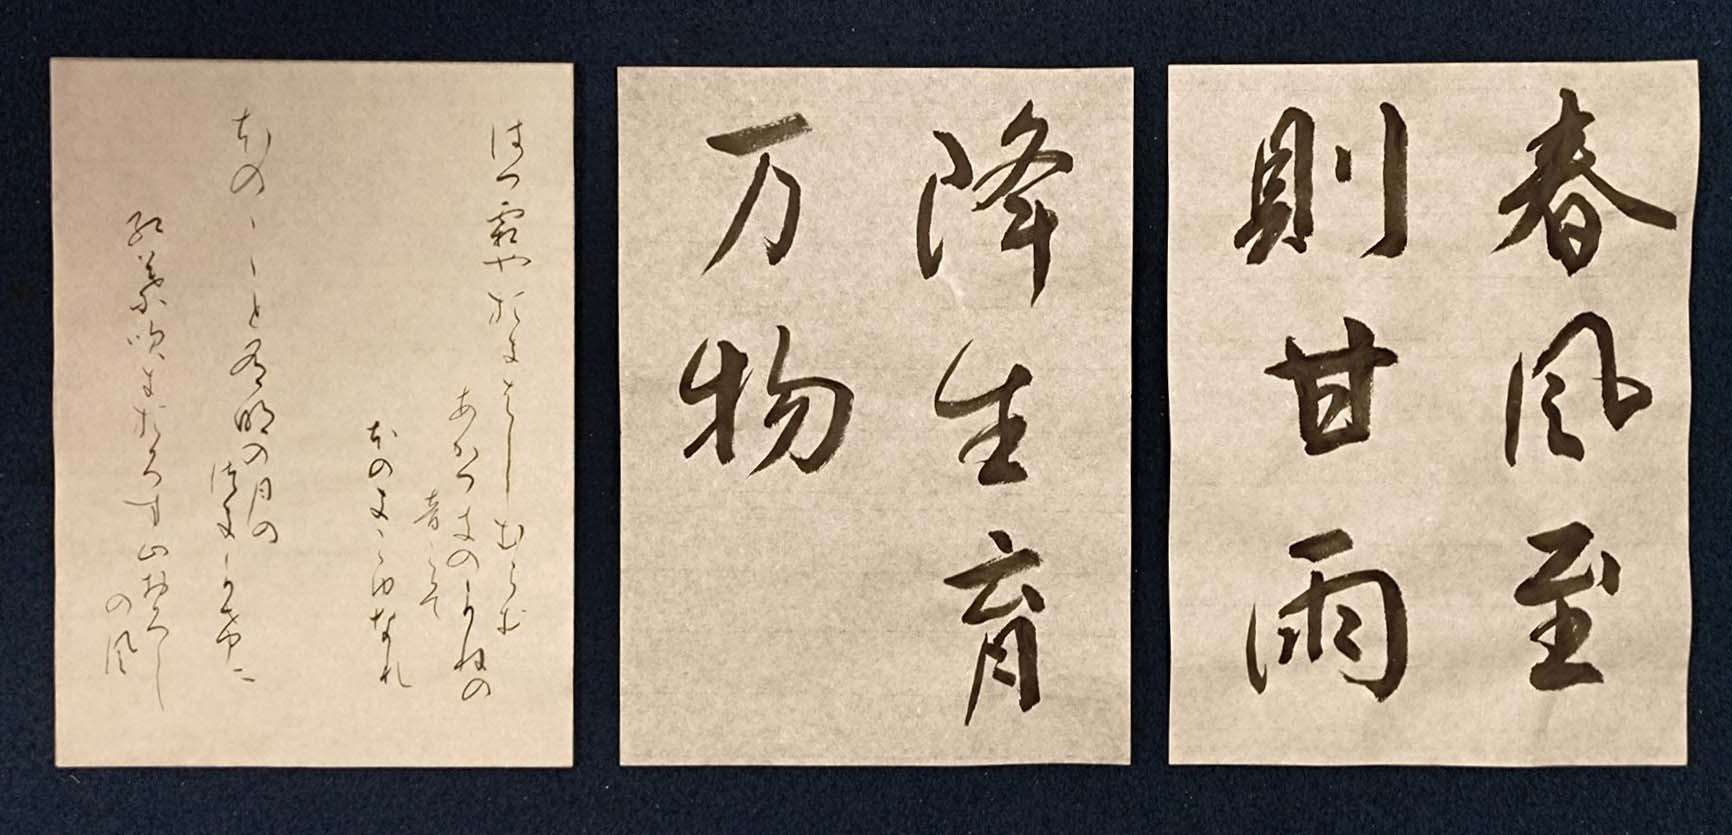 春風至
則甘雨
降生育
万物
はつ霜やおきはしむらむ
あかつきのかねの
音こそ
ほのきこゆなれ
ほのゝゝと有明の月の
つきかけに
紅葉吹きおろす山おろし
の風